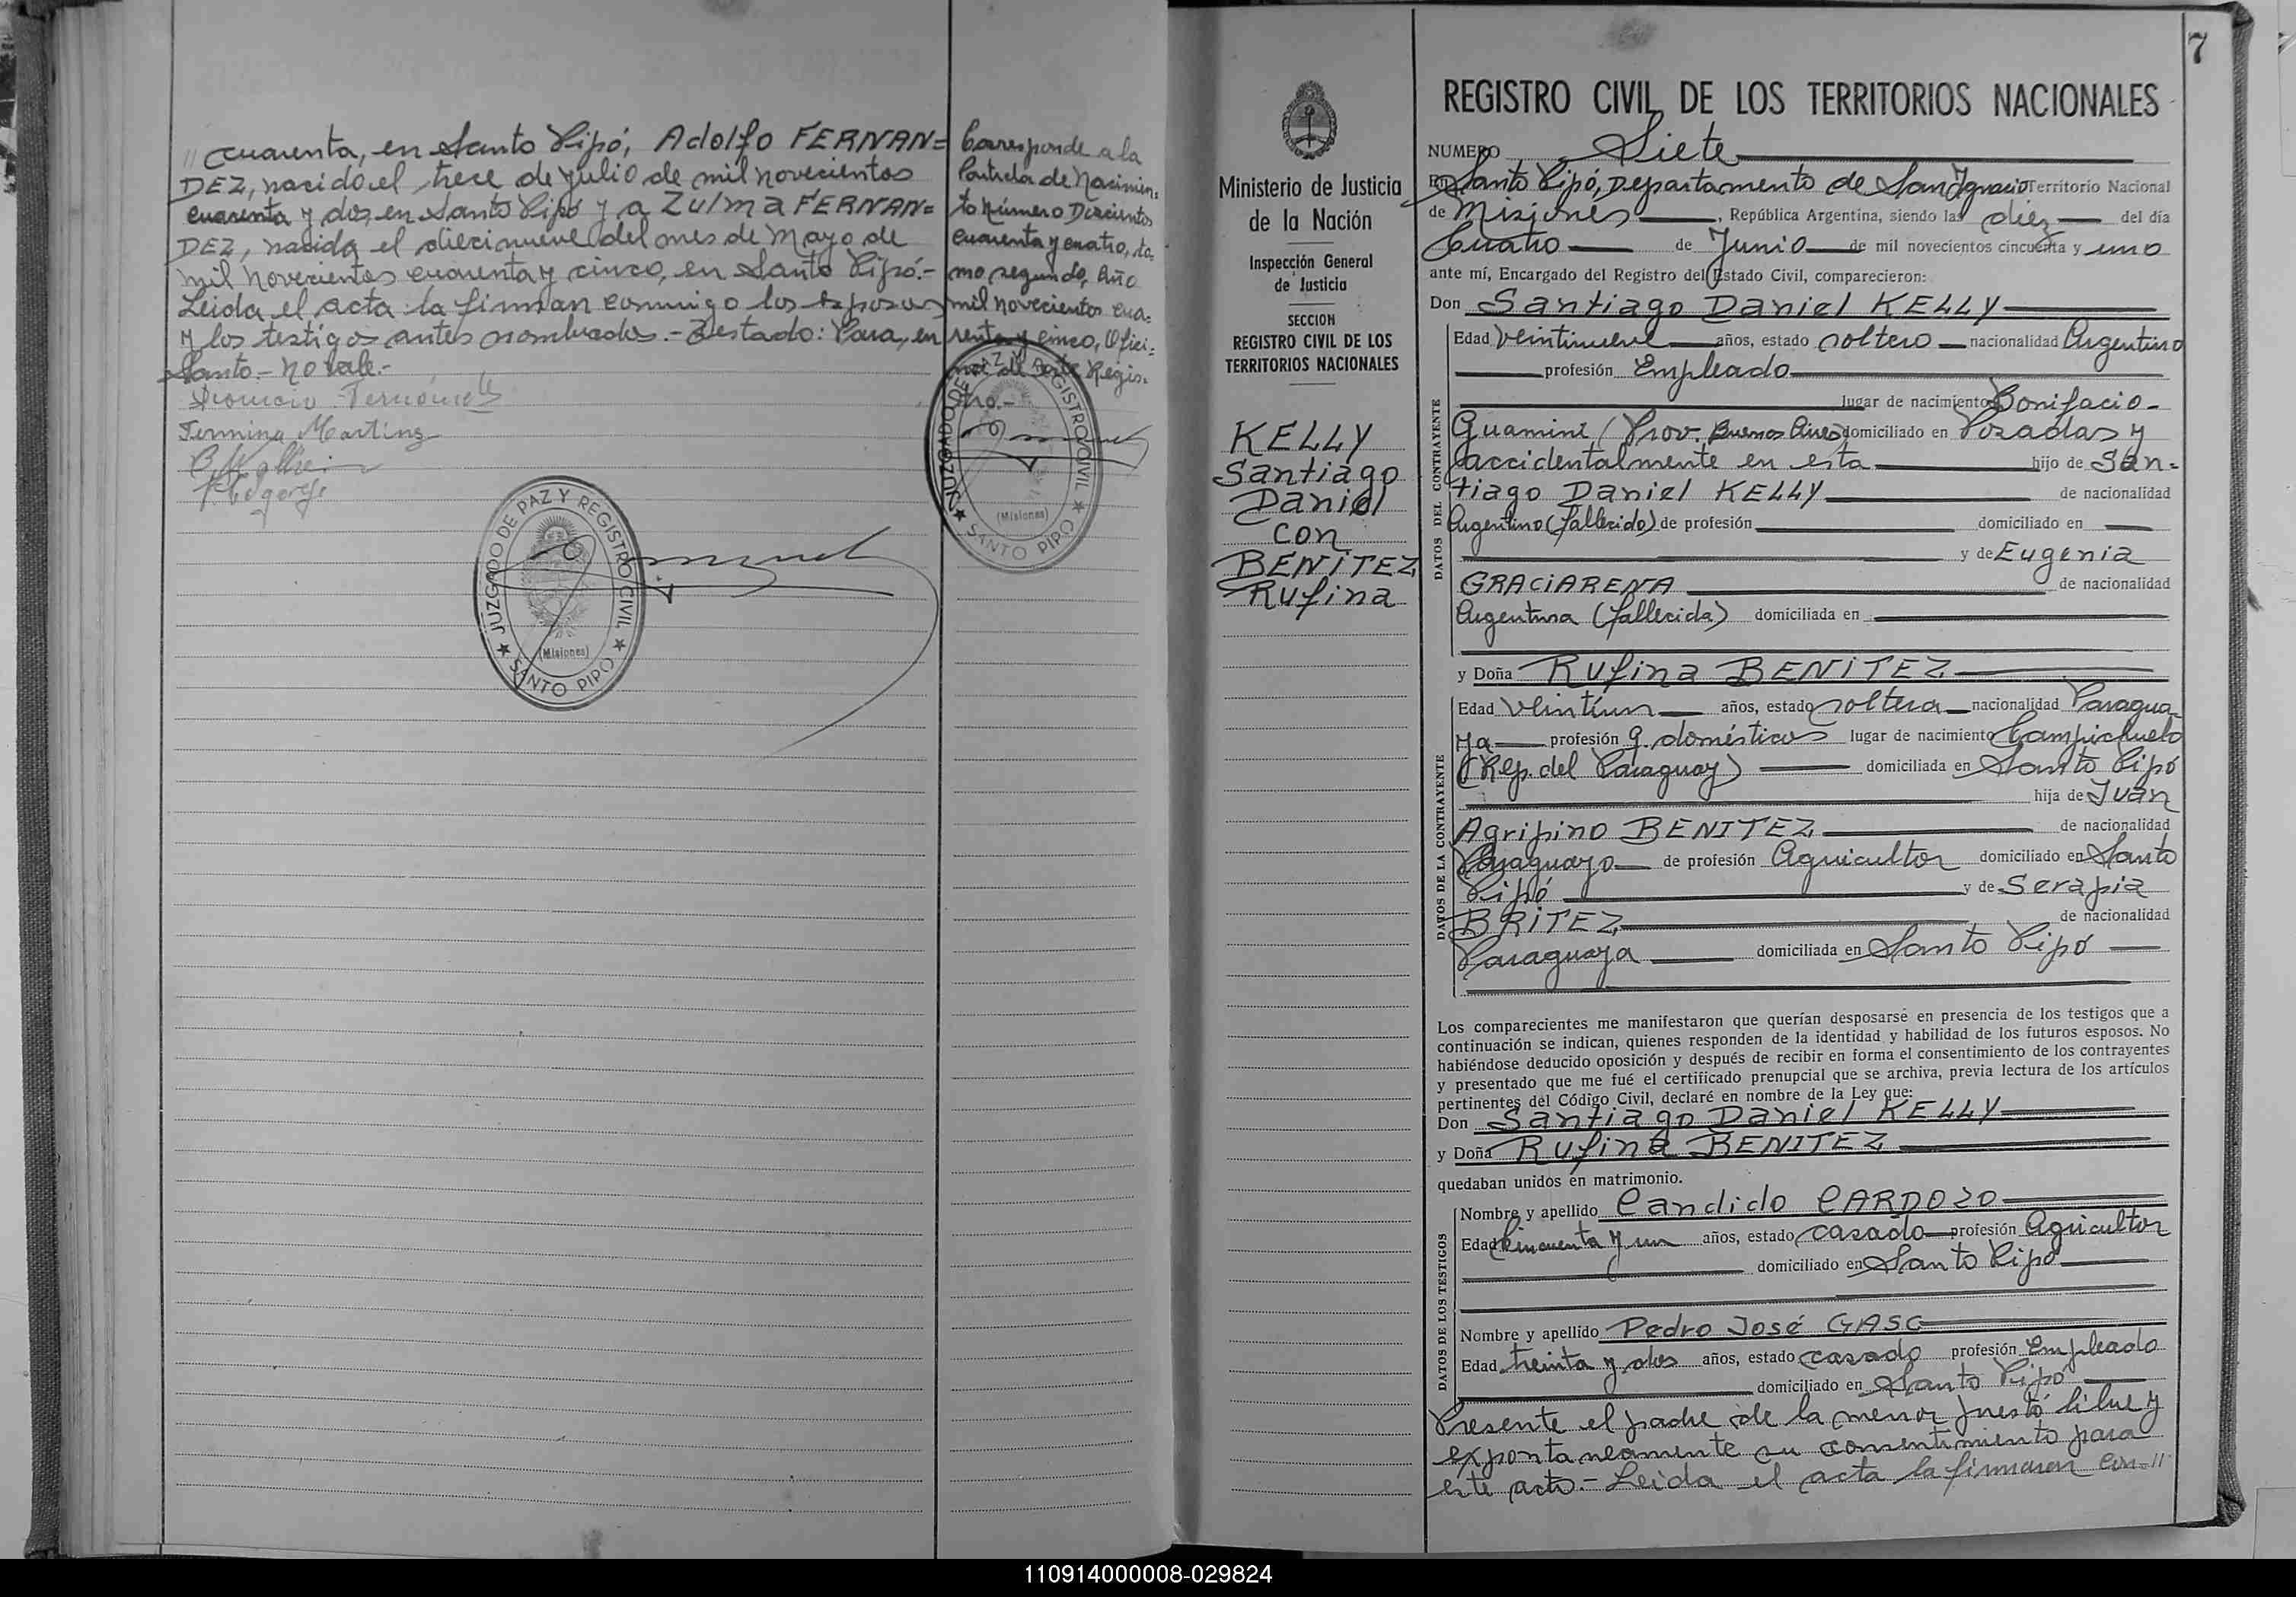 cuarenta, en Santo Pipó; Adolfo FERNAN=
DEZ, nacido el trece de Julio de mil novecientos
cuarenta y dos, en Santo Pipó y a Zulma FERNAN=
DEZ, nacida el diecinueve del mes de Mayo de
mil novecientos cuarenta y cinco, en Santo Pipó.-
Leida el acta la firman conmigo los esposos
y los testigos antes nombrados.- Testado: Para, en
Santo.- no vale.-
Fermina Martinez
JUZGADO DE PAZ Y REGISTRO CIVIL
(Misiones)
SANTO PIPÓ
Corresponde a la
Partida de Nacimien-
to Número Doscientos
cuarenta y cuatro, to-
mo segundo, Año
mil novecientos cua=
renta y cinco, Ofici=
na de este Regis-
tro.-
JUZGADO DE PAZ Y REGISTRO CIVIL
(Misiones)
SANTO PIPÓ
7
Ministerio de Justicia
de la Nación
Inspección General
de Justicia
SECCION
REGISTRO CIVIL DE LOS
TERRITORIOS NACIONALES
KELLY
Santiago
Daniel
con
BENITEZ
Rufina
REGISTRO CIVIL DE LOS TERRITORIOS NACIONALES
NUMERO Siete
En Santo Pipó, Departamento de San Ignacio Territorio Nacional
de Misiones, República Argentina, siendo las diez del día
Cuatro de Junio de mil novecientos cincuenta y uno
ante mí, Encargado del Registro del Estado Civil, comparecieron:
Don Santiago Daniel KELLY
DATOS DEL CONTRAYENTE
Edad veintinueve años, estado soltero nacionalidad Argentino
profesión Empleado
lugar de nacimiento Bonifacio-
Guamini (Prov. Buenos Aires) domiciliado en Posadas y
accidentalmente en esta hijo de San=
tiago Daniel KELLY de nacionalidad
Argentino (fallecido) de profesión domiciliado en
y de Eugenia
GRACIARENA de nacionalidad
Argentina (fallecida) domiciliada en
y Doña Rufina BENITEZ
DATOS DE LA CONTRAYENTE
Edad veintiun años, estado soltera nacionalidad Paragua-
ya profesión q. domésticos lugar de nacimiento Campichuelo
(Rep. del Paraguay) domiciliada en Santo Pipó
hija de Juan
Agripino BENITEZ de nacionalidad
Paraguayo de profesión Agricultor domiciliado en Santo
Pipó y de Serapia
BRITEZ de nacionalidad
Paraguaya domiciliada en Santo Pipó
Los comparecientes me manifestaron que querían desposarse en presencia de los testigos que a
continuación se indican, quienes responden de la identidad y habilidad de los futuros esposos. No
habiéndose deducido oposición y después de recibir en forma el consentimiento de los contrayentes
y presentado que me fué el certificado prenupcial que se archiva, previa lectura de los artículos
pertinentes del Código Civil, declaré en nombre de la Ley que:
Don Santiago Daniel KELLY
y Doña Rufina BENITEZ
quedaban unidos en matrimonio.
DATOS DE LOS TESTIGOS
Nombre y apellido Candido CARDOZO
Edad Cincuenta y un años, estado casado profesión Agricultor
domiciliado en Santo Pipó
Nombre y apellido Pedro José GASC
Edad treinta y dos años, estado casado profesión Empleado
domiciliado en Santo Pipó
Presente el padre de la menor prestó libre y
expontaneamente su consentimiento para
este acto.- Leida el acta la firmaron con=//
110914000008-029824